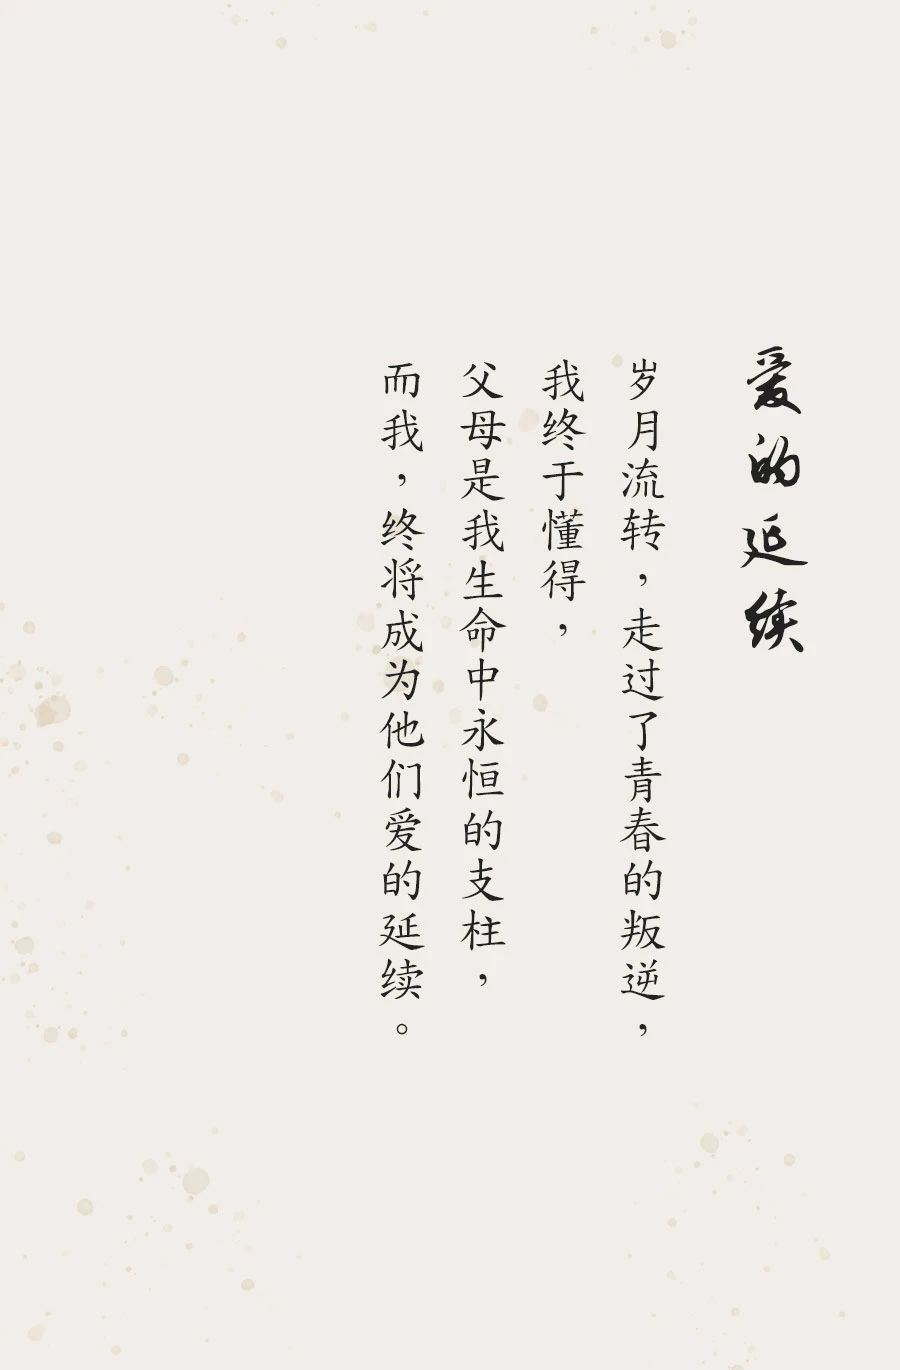 爱的延续
岁月流转，走过了青春的叛逆，
我终于懂得，
父母是我生命中永恒的支柱，
而我，终将成为他们爱的延续。